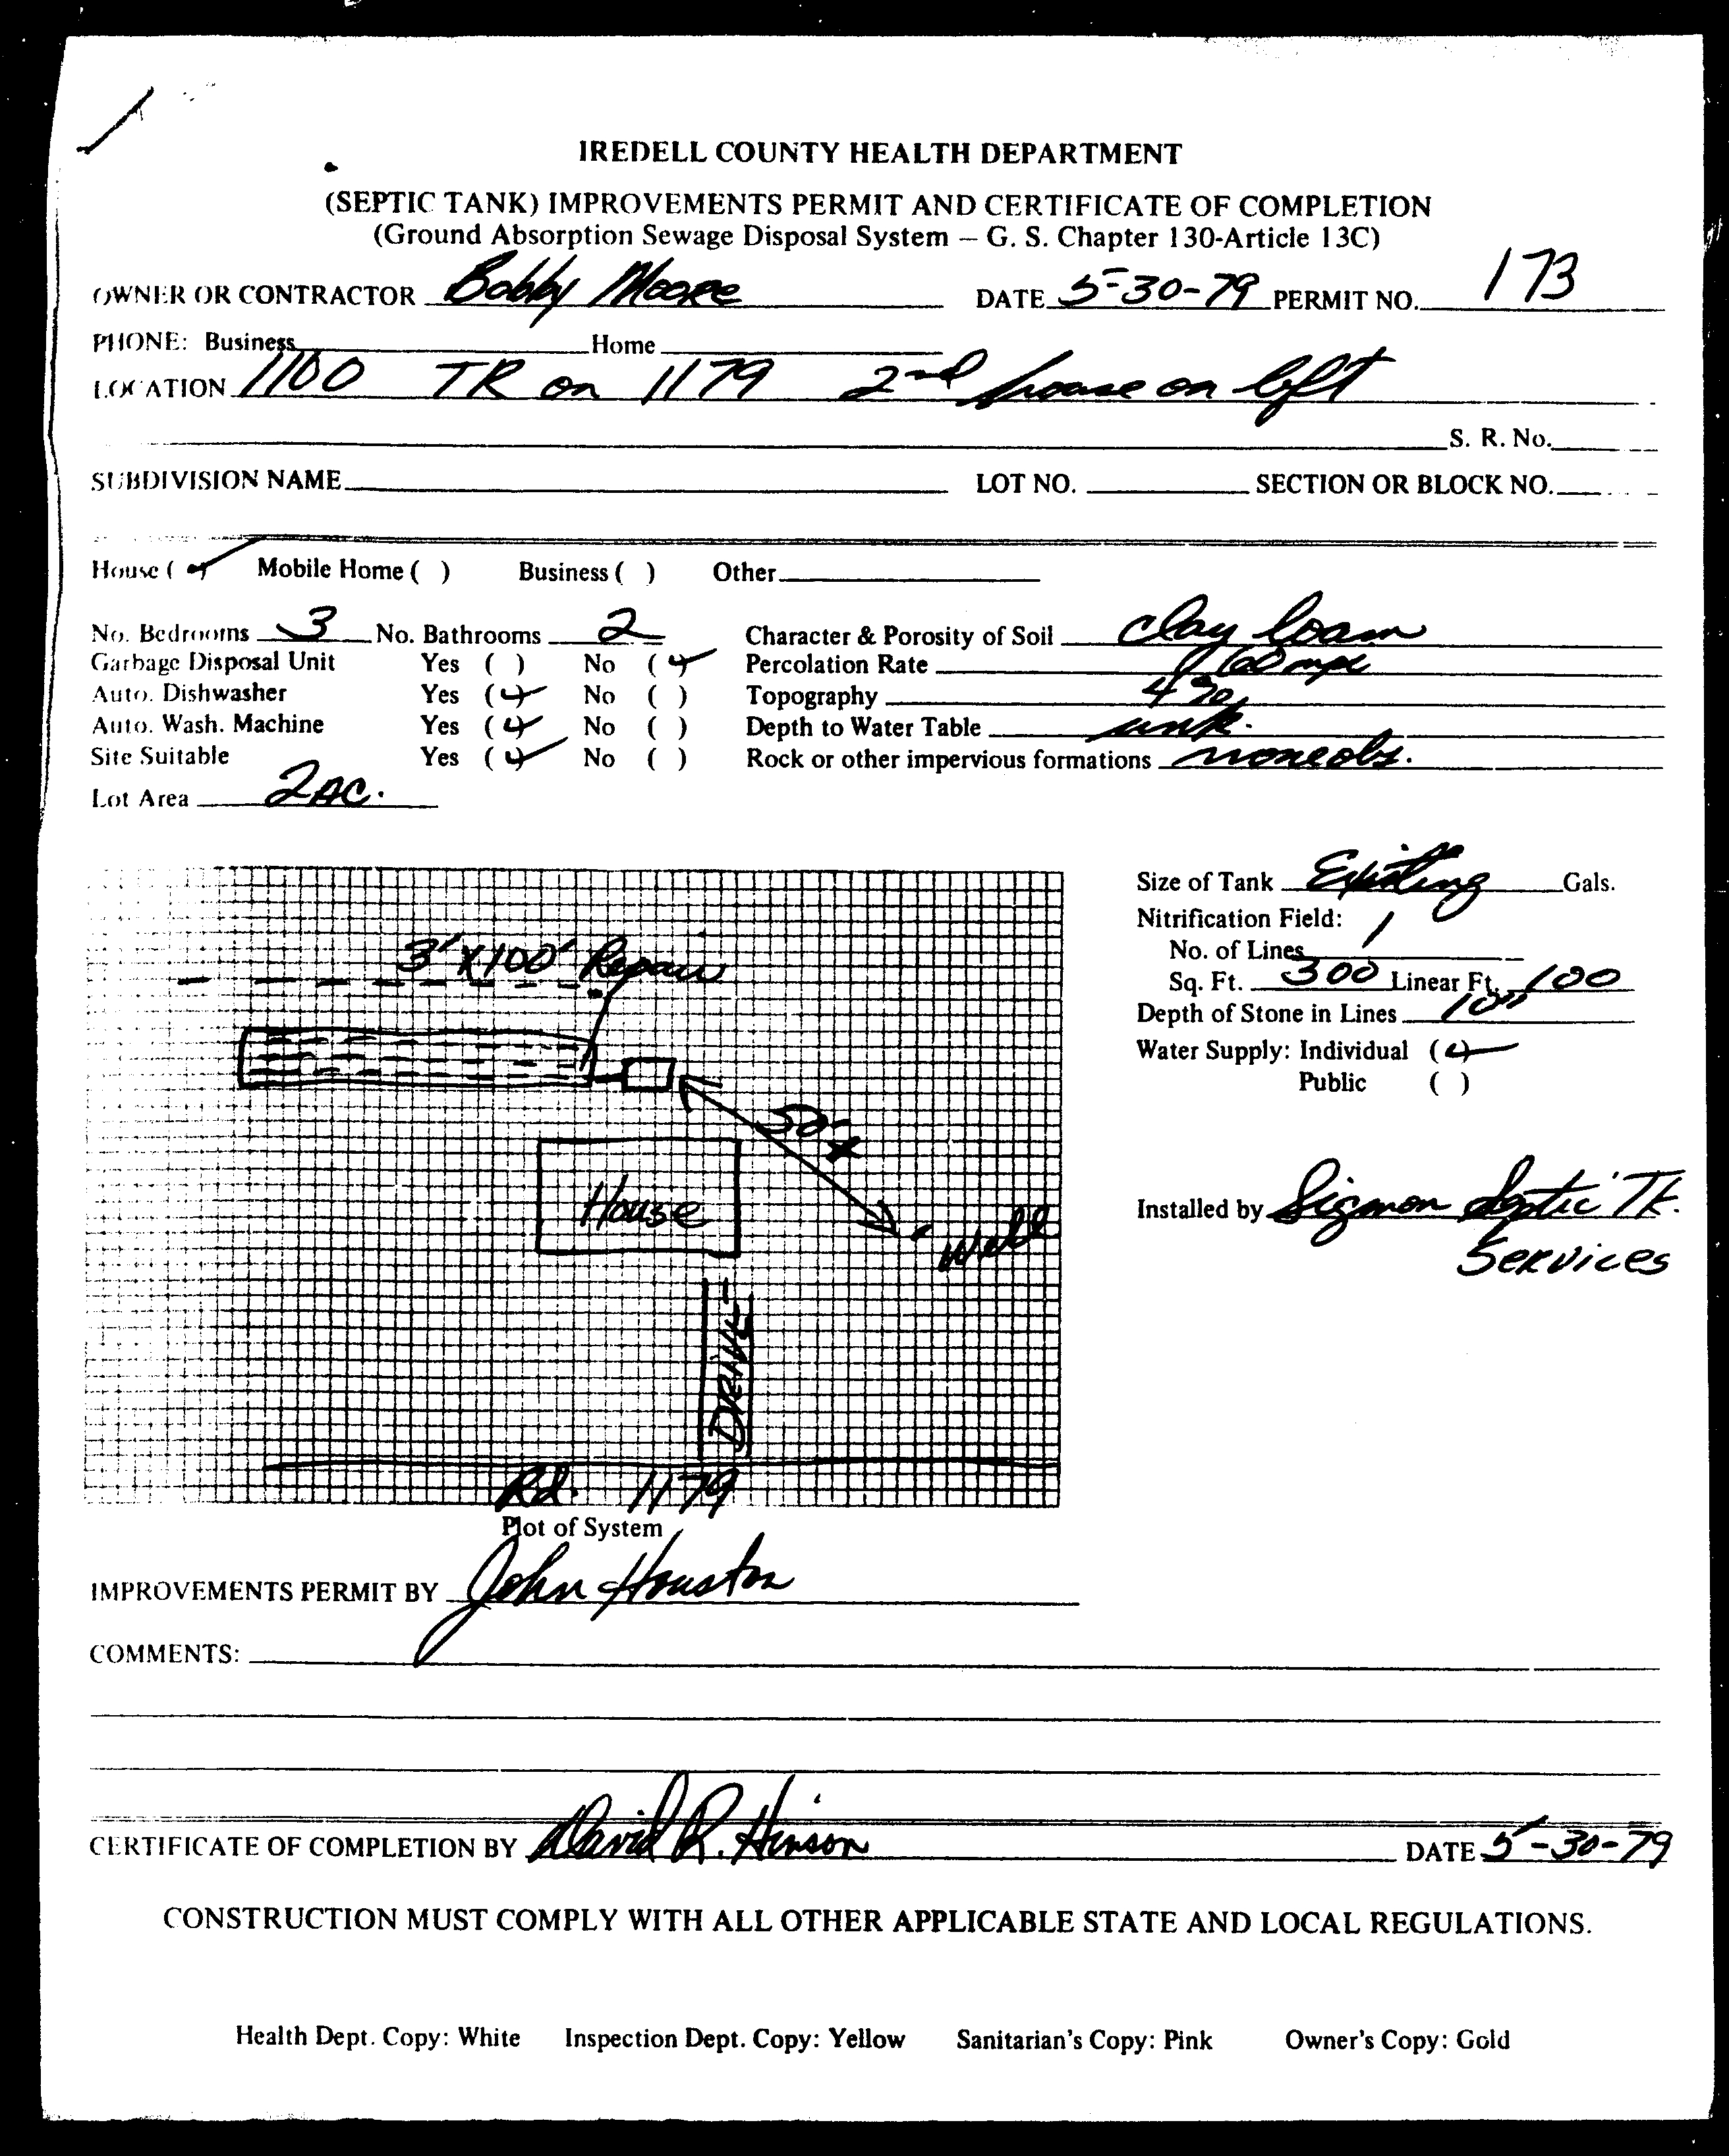 IREDELL COUNTY HEALTH DEPARTMENT
(SEPTIC TANK) IMPROVEMENTS PERMIT AND CERTIFICATE OF COMPLETION
(Ground Absorption Sewage Disposal System – G. S. Chapter 130-Article 13C)
OWNER OR CONTRACTOR Bobby Moore DATE 5-30-79 PERMIT NO. 173
PHONE: Business Home
LOCATION 1100 TR on 1179 2nd house on left
S. R. No.
SUBDIVISION NAME LOT NO. SECTION OR BLOCK NO.
House (✓) Mobile Home ( ) Business ( ) Other
No. Bedrooms 3 No. Bathrooms 2 Character & Porosity of Soil clay loam
Garbage Disposal Unit Yes ( ) No (✓) Percolation Rate 60 mpi
Auto. Dishwasher Yes (✓) No ( ) Topography 4%
Auto. Wash. Machine Yes (✓) No ( ) Depth to Water Table unk.
Site Suitable Yes (✓) No ( ) Rock or other impervious formations none obs.
Lot Area 2 AC.
Size of Tank Existing Gals.
Nitrification Field:
No. of Lines 1
Sq. Ft. 300 Linear Ft. 100
Depth of Stone in Lines 10"
Water Supply: Individual (✓)
Public ( )
Installed by Sigmon Septic TK.
Services
3' X 100' Repair
50'
House
Well
DRIVE
Rd. 1179
Plot of System
IMPROVEMENTS PERMIT BY John Houston
COMMENTS:
CERTIFICATE OF COMPLETION BY David R. Hinson DATE 5-30-79
CONSTRUCTION MUST COMPLY WITH ALL OTHER APPLICABLE STATE AND LOCAL REGULATIONS.
Health Dept. Copy: White Inspection Dept. Copy: Yellow Sanitarian's Copy: Pink Owner's Copy: Gold